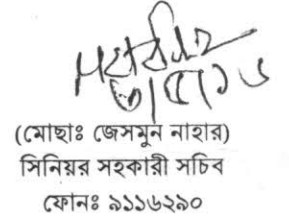 (মোছাঃ জেসমুন নাহার)
সিনিয়র সহকারী সচিব
ফোনঃ ৯১১৬২৯০